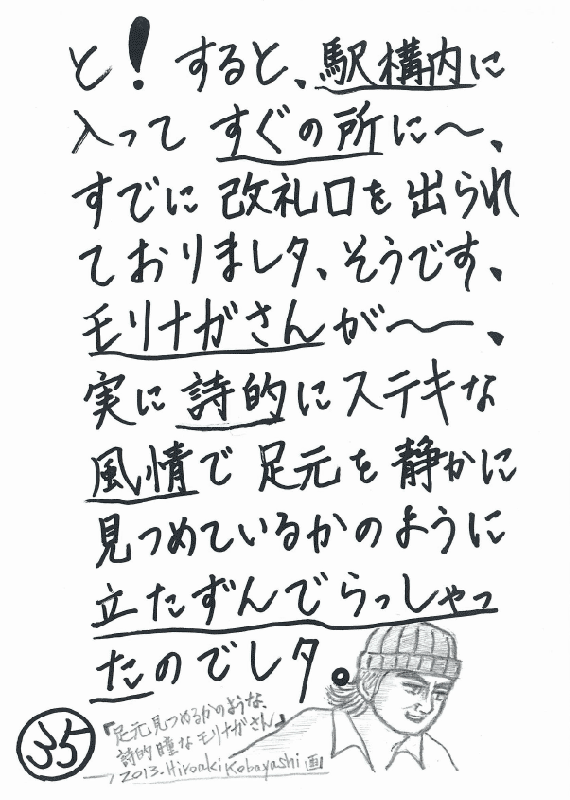 と！すると、駅構内に
入って すぐの所に〜、
すでに 改札口を 出られ
ておりましタ、そうです、
モリナガさんが〜〜、
実に 詩的に ステキな
風情で 足元を 静かに
見つめているかのように
立たずんでらっしゃっ
たのでしタ。
『足元見つめるかのような、
詩的瞳な モリナガさん』
2013.Hiroaki Kobayashi 画
35